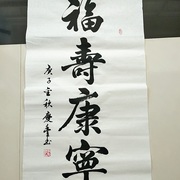 福壽康寧
庚子金秋